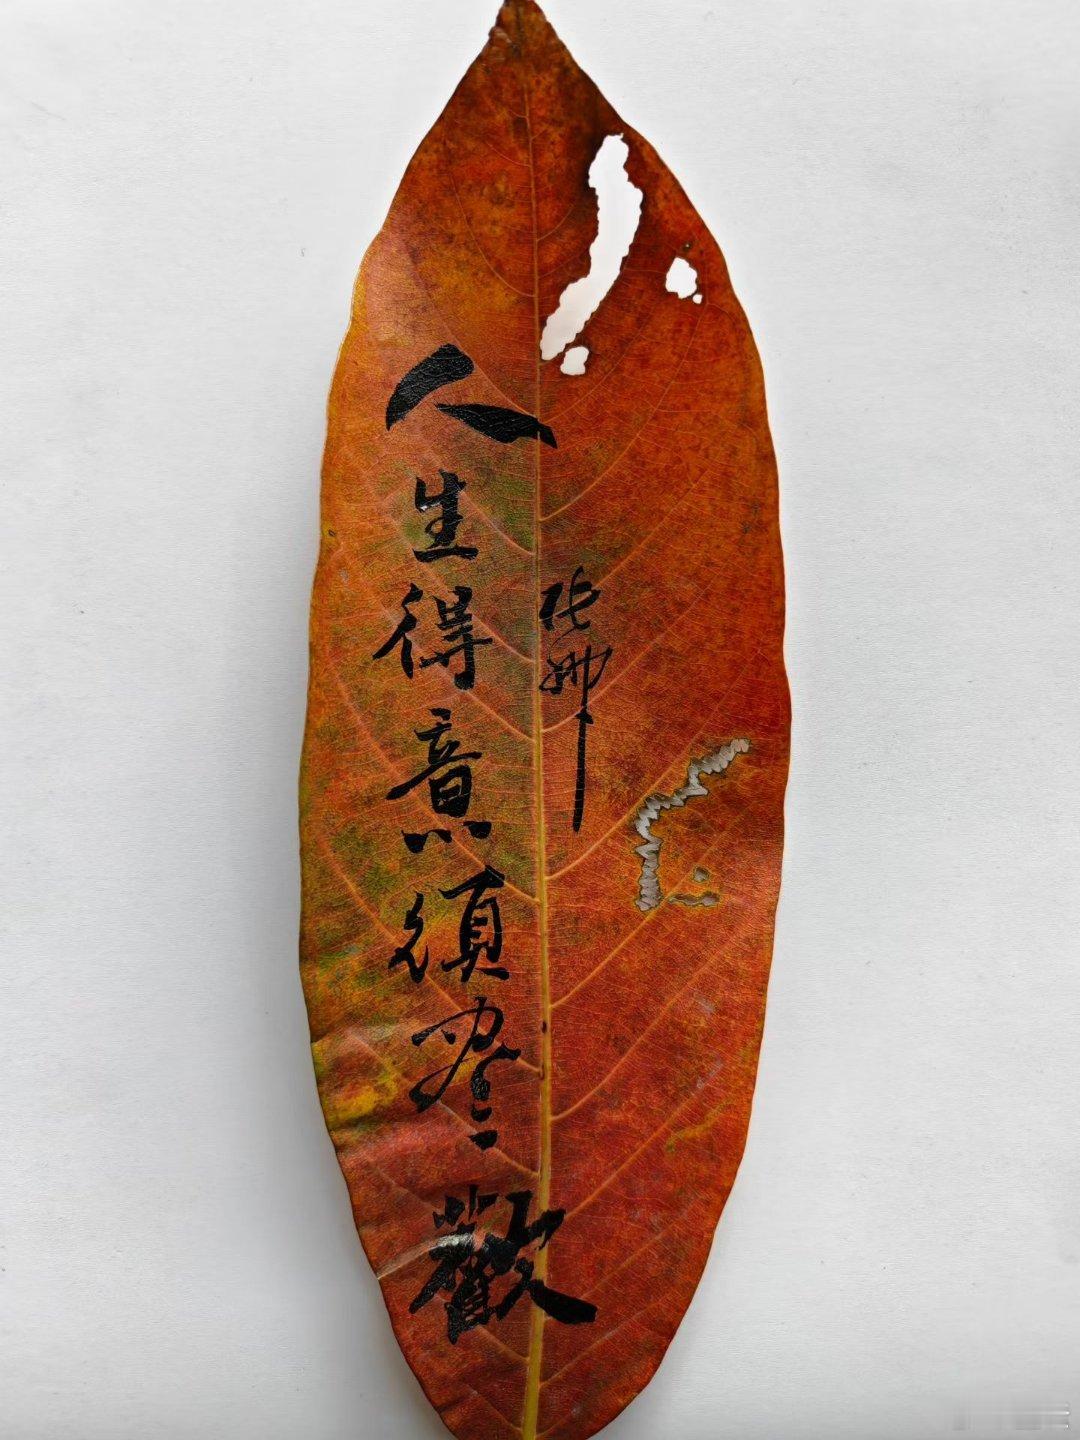 人生得意須尽歡